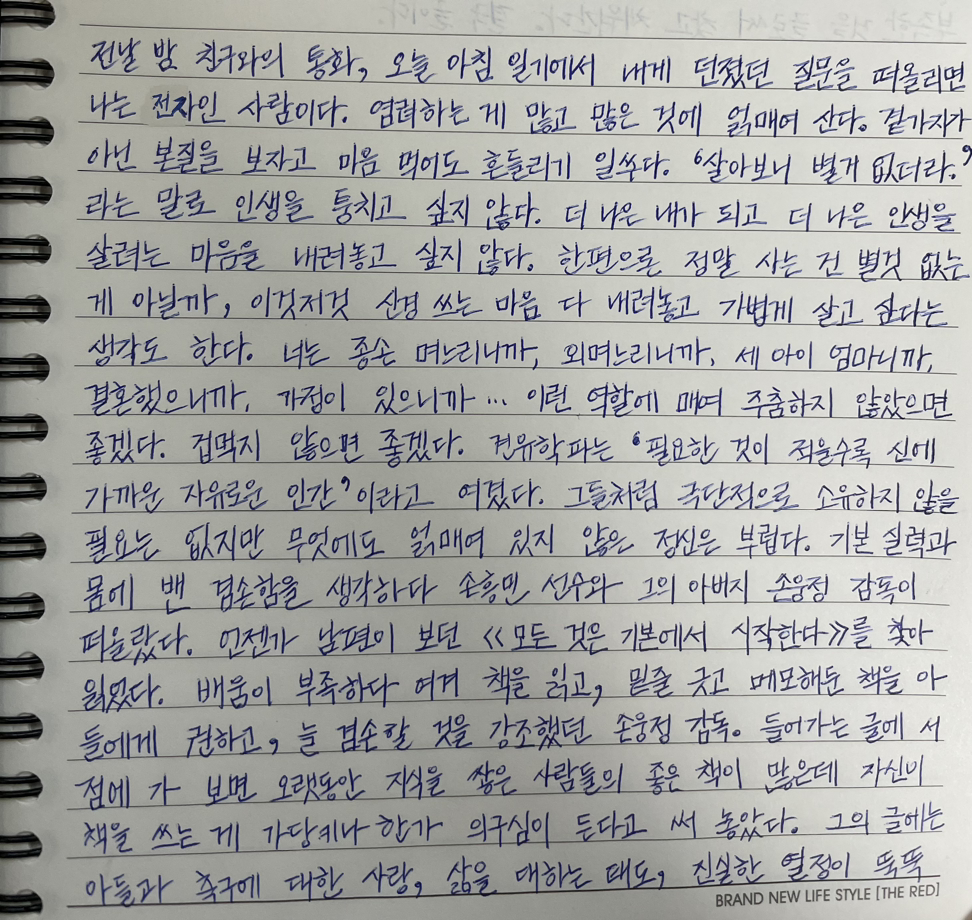 전날 밤 친구와의 통화, 오늘 아침 일기에서 내게 던졌던 질문을 떠올리면
나는 전자인 사람이다. 염려하는 게 많고 많은 것에 얽매여 산다. 겉가지가
아닌 본질을 보자고 마음 먹어도 흔들리기 일쑤다. ‘살아보니 별거 없더라.’
라는 말로 인생을 퉁치고 싶지 않다. 더 나은 내가 되고 더 나은 인생을
살려는 마음을 내려놓고 싶지 않다. 한편으론 정말 사는 건 별것 없는
게 아닐까, 이것저것 신경 쓰는 마음 다 내려놓고 가볍게 살고 싶다는
생각도 한다. 너는 종손 며느리니까, 외며느리니까, 세 아이 엄마니까,
결혼했으니까, 가정이 있으니까 … 이런 역할에 매여 주춤하지 않았으면
좋겠다. 겁먹지 않으면 좋겠다. 견유학파는 ‘필요한 것이 적을수록 신에
가까운 자유로운 인간’이라고 여겼다. 그들처럼 극단적으로 소유하지 않을
필요는 없지만 무엇에도 얽매여 있지 않은 정신은 부럽다. 기본 실력과
몸에 밴 겸손함을 생각하다 손흥민 선수와 그의 아버지 손웅정 감독이
떠올랐다. 언젠가 남편이 보던 《모든 것은 기본에서 시작한다》를 찾아
읽었다. 배움이 부족하다 여겨 책을 읽고, 밑줄 긋고 메모해둔 책을 아
들에게 권하고, 늘 겸손할 것을 강조했던 손웅정 감독. 들어가는 글에 서
점에 가 보면 오랫동안 지식을 쌓은 사람들의 좋은 책이 많은데 자신이
책을 쓰는 게 가당키나 한가 의구심이 든다고 써 놓았다. 그의 글에는
아들과 축구에 대한 사랑, 삶을 대하는 태도, 진실한 열정이 뚝뚝
BRAND NEW LIFE STYLE [THE RED]